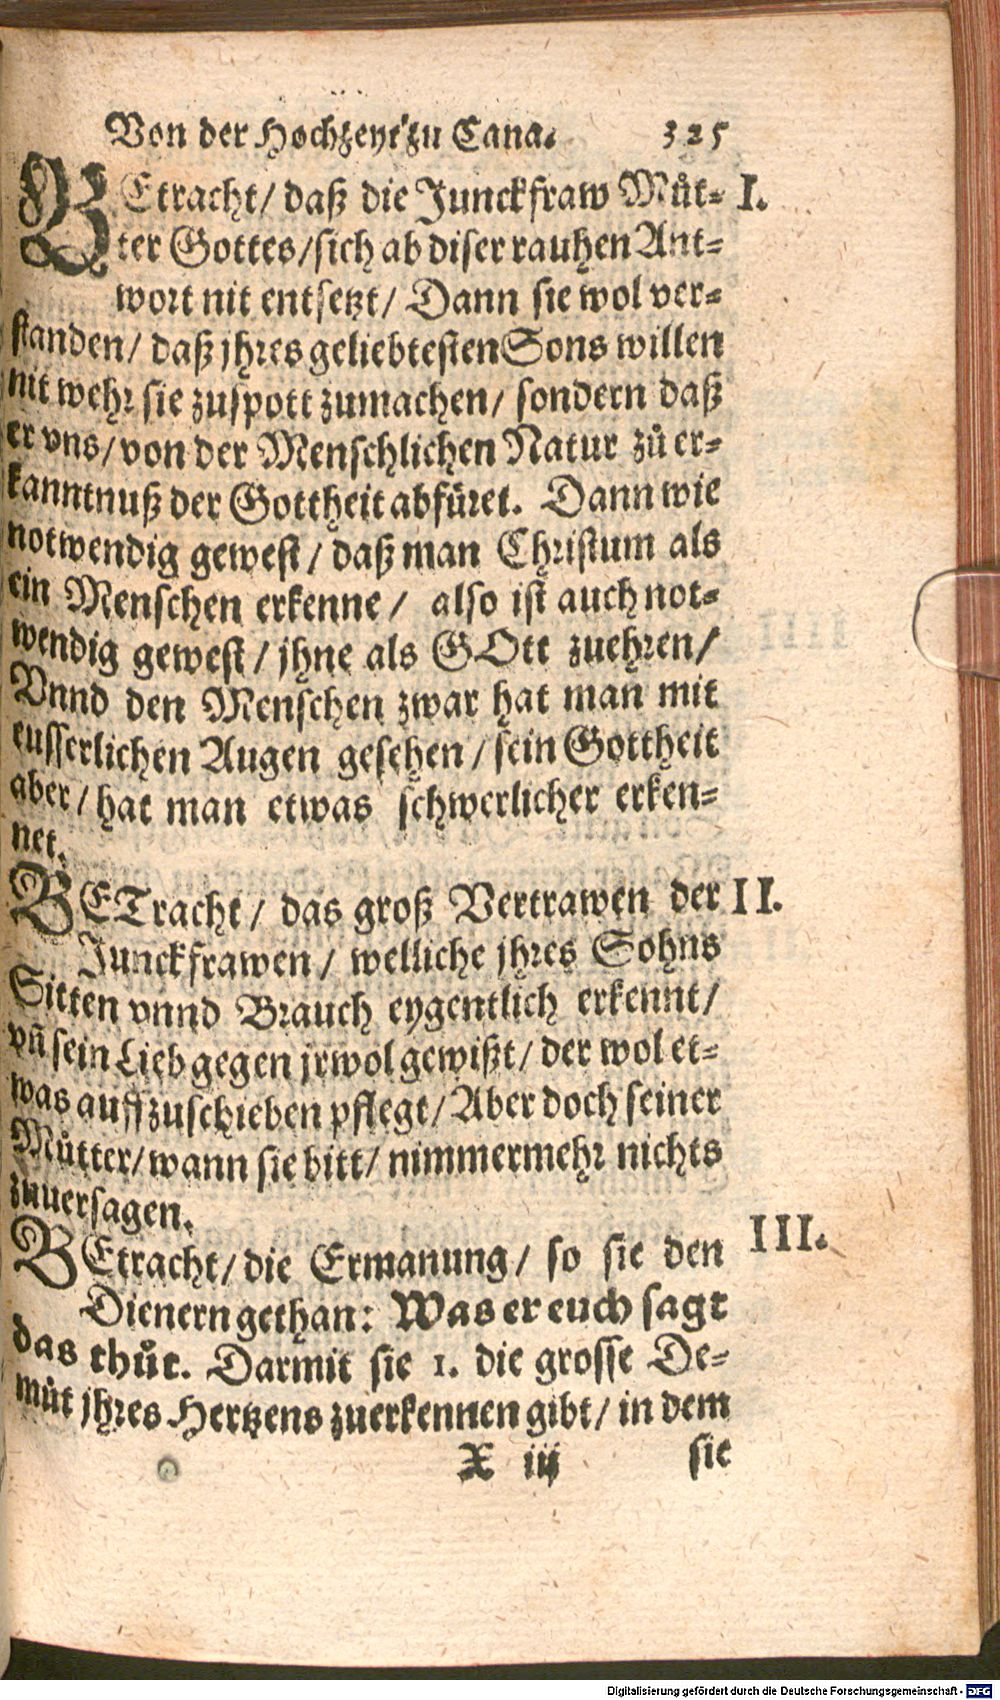 Von der Hochzeyt zu Cana. 325
BEtracht/ daß die Junckfraw Můt- I.
ter Gottes/sich ab diser rauhen Ant-
wort nit entsetzt/ Dann sie wol ver-
standen/ daß jhres geliebtesten Sons willen
nit wehr sie zuspott zumachen/ sondern daß
er vns/ von der Menschlichen Natur zů er-
kanntnuß der Gottheit abfüret. Dann wie
notwendig gewest/ daß man Christum als
ein Menschen erkenne/ also ist auch not-
wendig gewest/ jhne als GOtt zuehren/
Vnnd den Menschen zwar hat man mit
eusserlichen Augen gesehen/ sein Gottheit
aber/ hat man etwas schwerlicher erken-
net.
BETracht/ das groß Vertrawen der II.
Junckfrawen/ welliche jhres Sohns
Sitten vnnd Brauch eygentlich erkennt/
vñ sein Lieb gegen jr wol gewißt/ der wol et-
was auffzuschieben pflegt/ Aber doch seiner
Můtter/ wann sie bitt/ nimmermehr nichts
zuuersagen.
BEtracht/ die Ermanung/ so sie den III.
Dienern gethan: Was er euch sagt
das thůt. Darmit sie 1. die grosse De-
můt jhres Hertzens zuerkennen gibt/ in dem
X iij sie
Digitalisierung gefördert durch die Deutsche Forschungsgemeinschaft - DFG